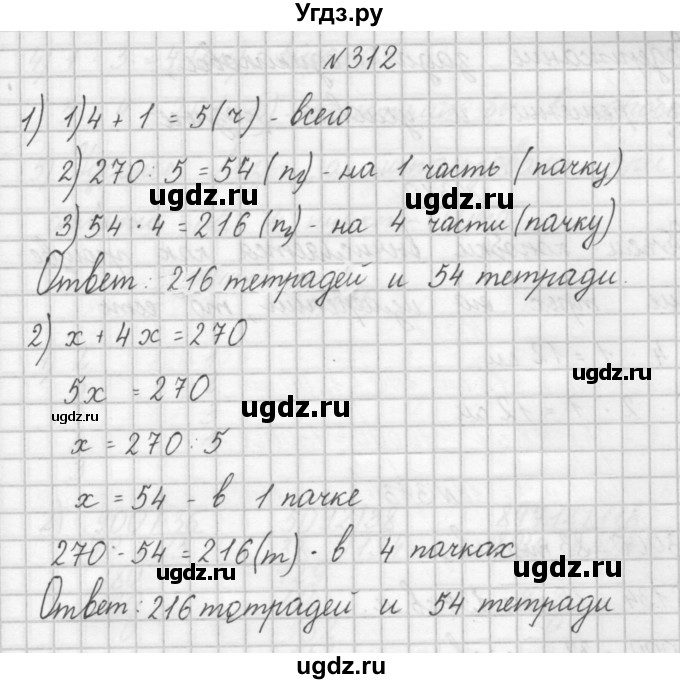 Угдз.ру
№312
1) 1) 4 + 1 = 5 (ч) - всего
2) 270 : 5 = 54 (п) - на 1 часть (пачку)
ugdz.ru ugdz.ru
3) 54 · 4 = 216 (п) - на 4 части (пачку)
Ответ: 216 тетрадей и 54 тетради.
2) x + 4x = 270
5x = 270
ugdz.ru ugdz.ru
x = 270 : 5
x = 54 - в 1 пачке
270 - 54 = 216 (т) - в 4 пачках
ugdz.ru ugdz.ru
Ответ: 216 тотрадей и 54 тетради
ugdz.ru